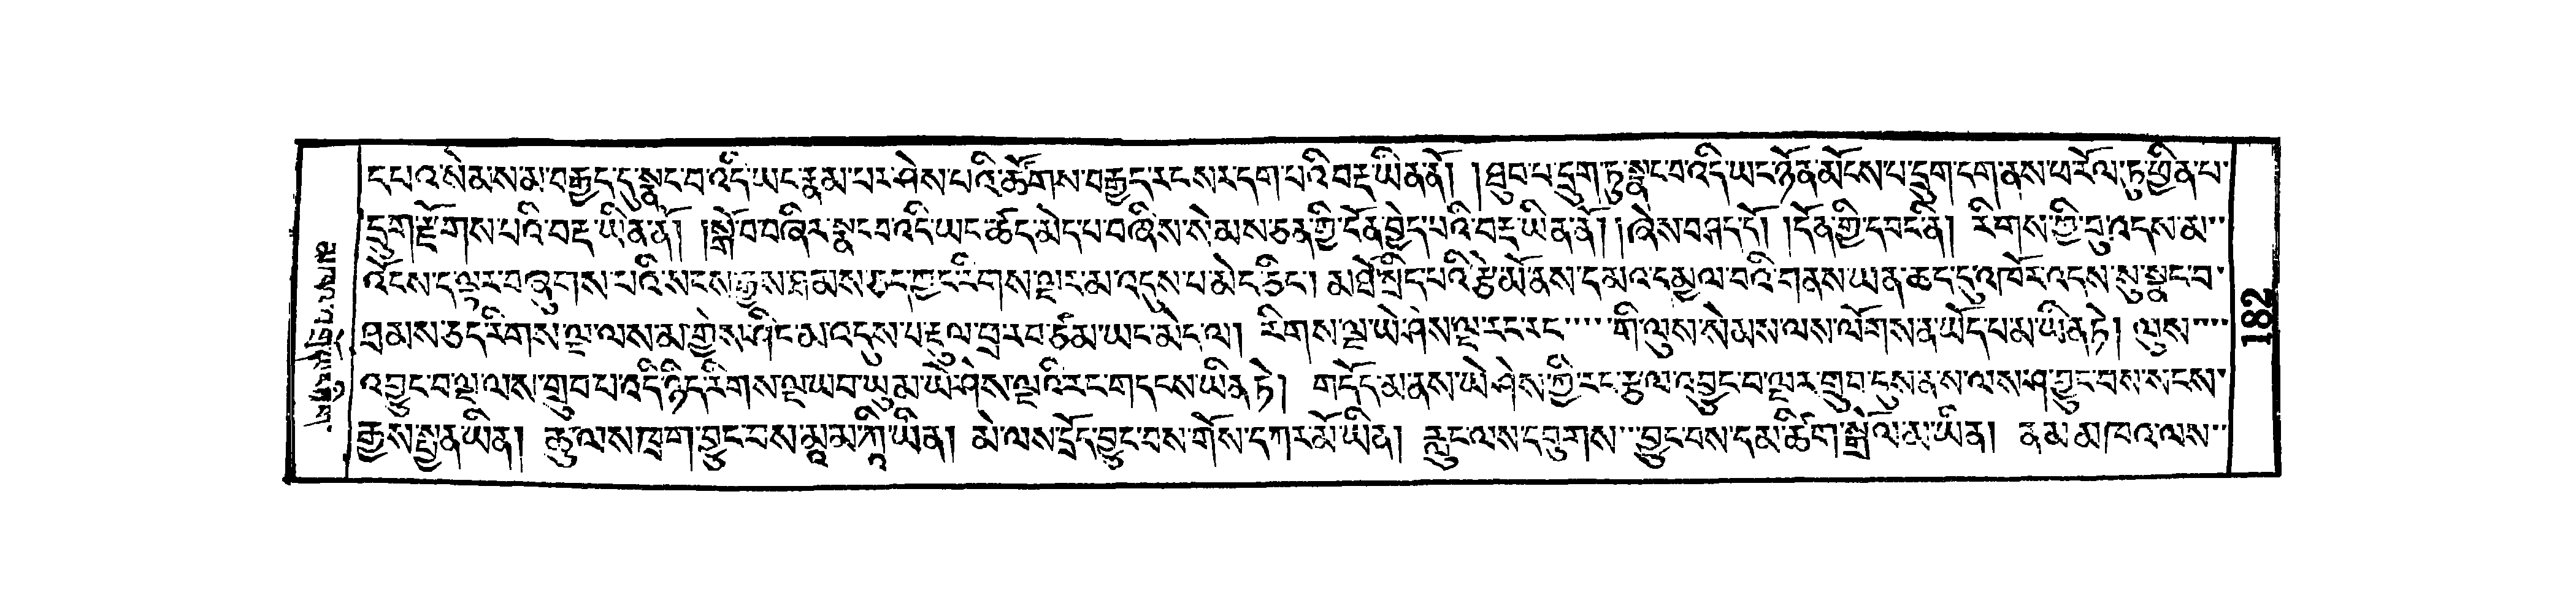 དཔའ་སེམས་མ་བརྒྱད་དུ་སྣང་བ་འདི་ཡང་རྣམ་པར་ཤེས་པའི་ཚོགས་བརྒྱད་རང་སར་དག་པའི་བརྡ་ཡིན་ནོ། །ཐུབ་པ་དྲུག་ཏུ་སྣང་བ་འདི་ཡང་ཉོན་མོངས་པ་དྲུག་དག་ནས་ཕ་རོལ་ཏུ་ཕྱིན་པ་
དྲུག་རྫོགས་པའི་བརྡ་ཡིན་ནོ། །སྒོ་བ་བཞིར་སྣང་བ་འདི་ཡང་ཚད་མེད་པ་བཞིས་སེམས་ཅན་གྱི་དོན་བྱེད་པའི་བརྡ་ཡིན་ནོ། །ཞེས་བཤད་དོ། །དོན་གྱི་དབང་ནི། རིགས་ཀྱི་བུ་འདས་མ་
འོངས་ད་ལྟར་བཞུགས་པའི་སངས་རྒྱས་ཐམས་ཅད་ཀྱང་རིགས་ལྔར་མ་འདུས་པ་མེད་ཅིང་། མཐོ་སྲིད་པའི་རྩེ་མོ་ནས་དམའ་དམྱལ་བའི་གནས་ཡན་ཆད་དུ་འཁོར་འདས་སུ་སྣང་བ་
ཐམས་ཅད་རིགས་ལྔ་ལས་མ་གྱེས་ཤིང་མ་འདུས་པ་རྡུལ་ཕྲ་རབ་ཙམ་ཡང་མེད་ལ། རིགས་ལྔ་ཡེ་ཤེས་ལྔ་རང་རང་གི་ལུས་སེམས་ལས་ལོགས་ན་ཡོད་པ་མ་ཡིན་ཏེ། ལུས་
འབྱུང་བ་ལྔ་ལས་གྲུབ་པ་འདི་ཉིད་རིགས་ལྔ་ཡབ་ཡུམ་ཡེ་ཤེས་ལྔའི་རང་གདངས་ཡིན་ཏེ། གདོད་མ་ནས་ཡེ་ཤེས་ཀྱི་རང་རྩལ་འབྱུང་བ་ལྔར་གྲུབ་དུས་ནས་ལས་ཤ་བྱུང་བས་སངས་
རྒྱས་སྤྱན་ཡིན། ཆུ་ལས་ཁྲག་བྱུང་བས་མཱ་མ་ཀཱི་ཡིན། མེ་ལས་དྲོད་བྱུང་བས་གོས་དཀར་མོ་ཡིན། རླུང་ལས་དབུགས་བྱུང་བས་དམ་ཚིག་སྒྲོལ་མ་ཡིན། ནམ་མཁའ་ལས་
182